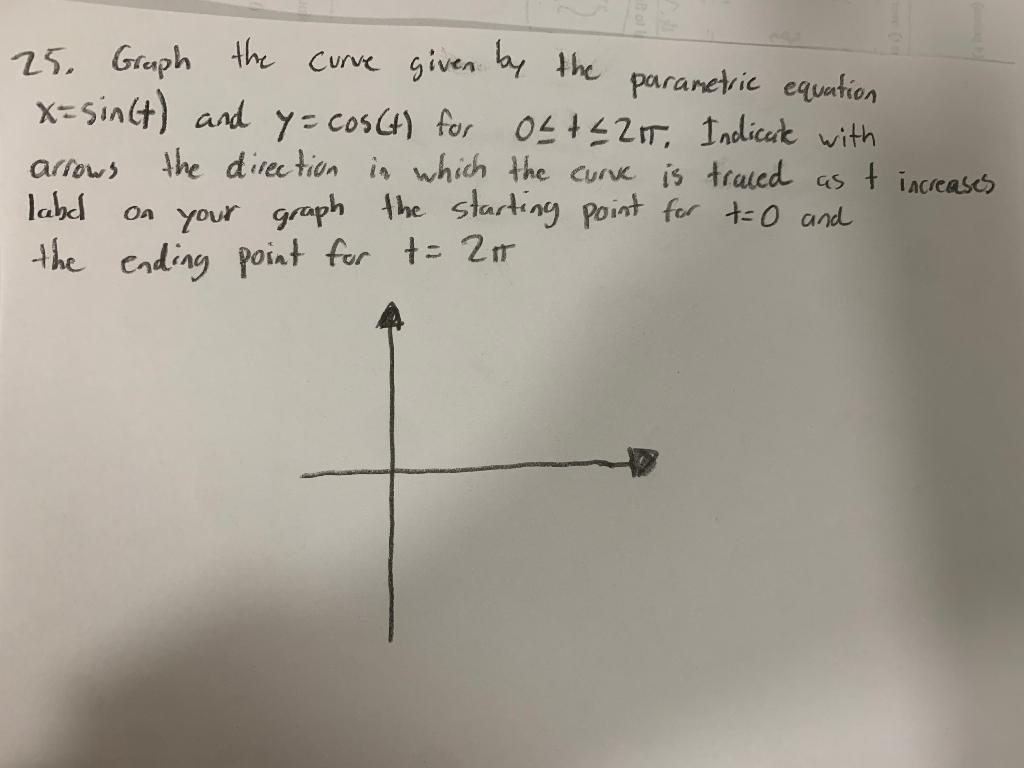 25. Graph the curve given by the parametric equation
x=sin(t) and y=cos(t) for 0≤t≤2π. Indicate with
arrows the direction in which the curve is traced as t increases
label on your graph the starting point for t=0 and
the ending point for t=2π